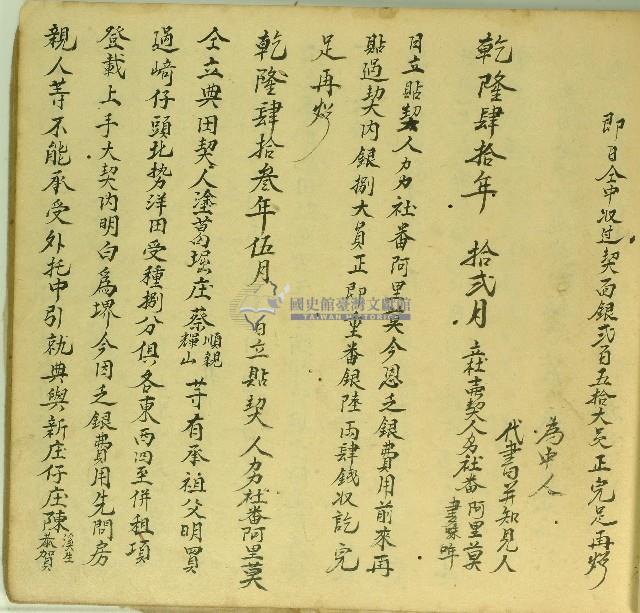 即日仝中收过契面銀弍百五拾大元正完足再炤
為中人
代書并知見人
乾隆肆拾年 拾弍月 立社賣契人芳社番阿里莫
日立貼契人力力社番阿里莫今因乏銀費用前來再
貼過契內銀捌大員正即重番銀陸両肆錢收訖完
足再炤
乾隆肆拾叁年伍月 日立貼契人力社番阿里莫
仝立典田契人塗葛堀庄蔡順親輝山等有承祖父明買
過崎仔頭北势洋田受種捌分俱各東西四至併租項
登載上手大契內明白為堺今因乏銀費用先問房
親人等不能承受外托中引就典與新庄仔庄陳漢生恭賀
國史館臺灣文獻館
TAIWAN HISTORICA